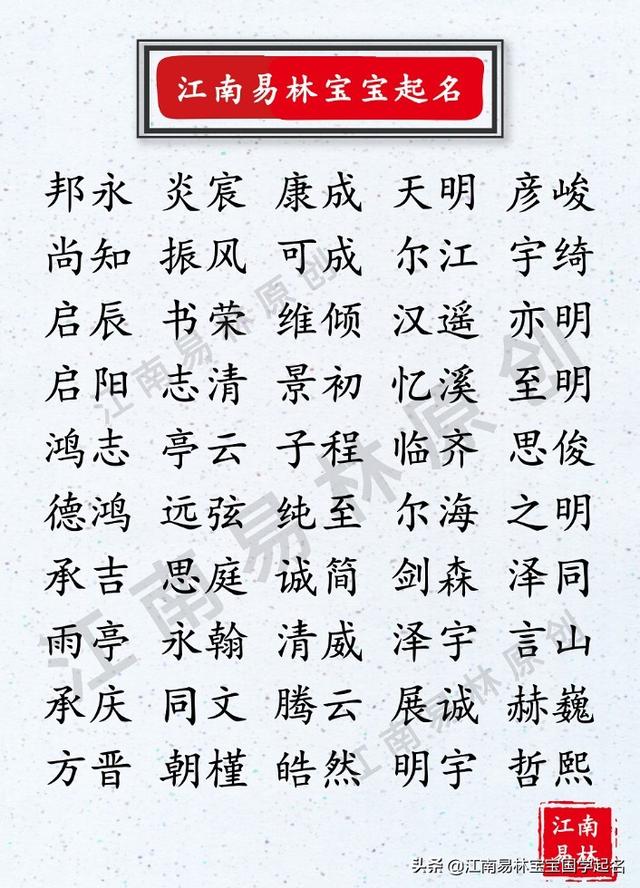 江南易林宝宝起名
邦永 炎宸 康成 天明 彦峻
尚知 振风 可成 尔江 宇绮
启辰 书荣 维倾 汉遥 亦明
启阳 志清 景初 忆溪 至明
鸿志 亭云 子程 临齐 思俊
德鸿 远弦 纯至 尔海 之明
承吉 思庭 诚简 剑森 泽同
雨亭 永翰 清威 泽宇 言山
承庆 同文 腾云 展诚 赫巍
方晋 朝槿 皓然 明宇 哲熙
江南易林原创
江南易林原创
江南易林原创
江南
易林
头条 @江南易林宝宝国学起名